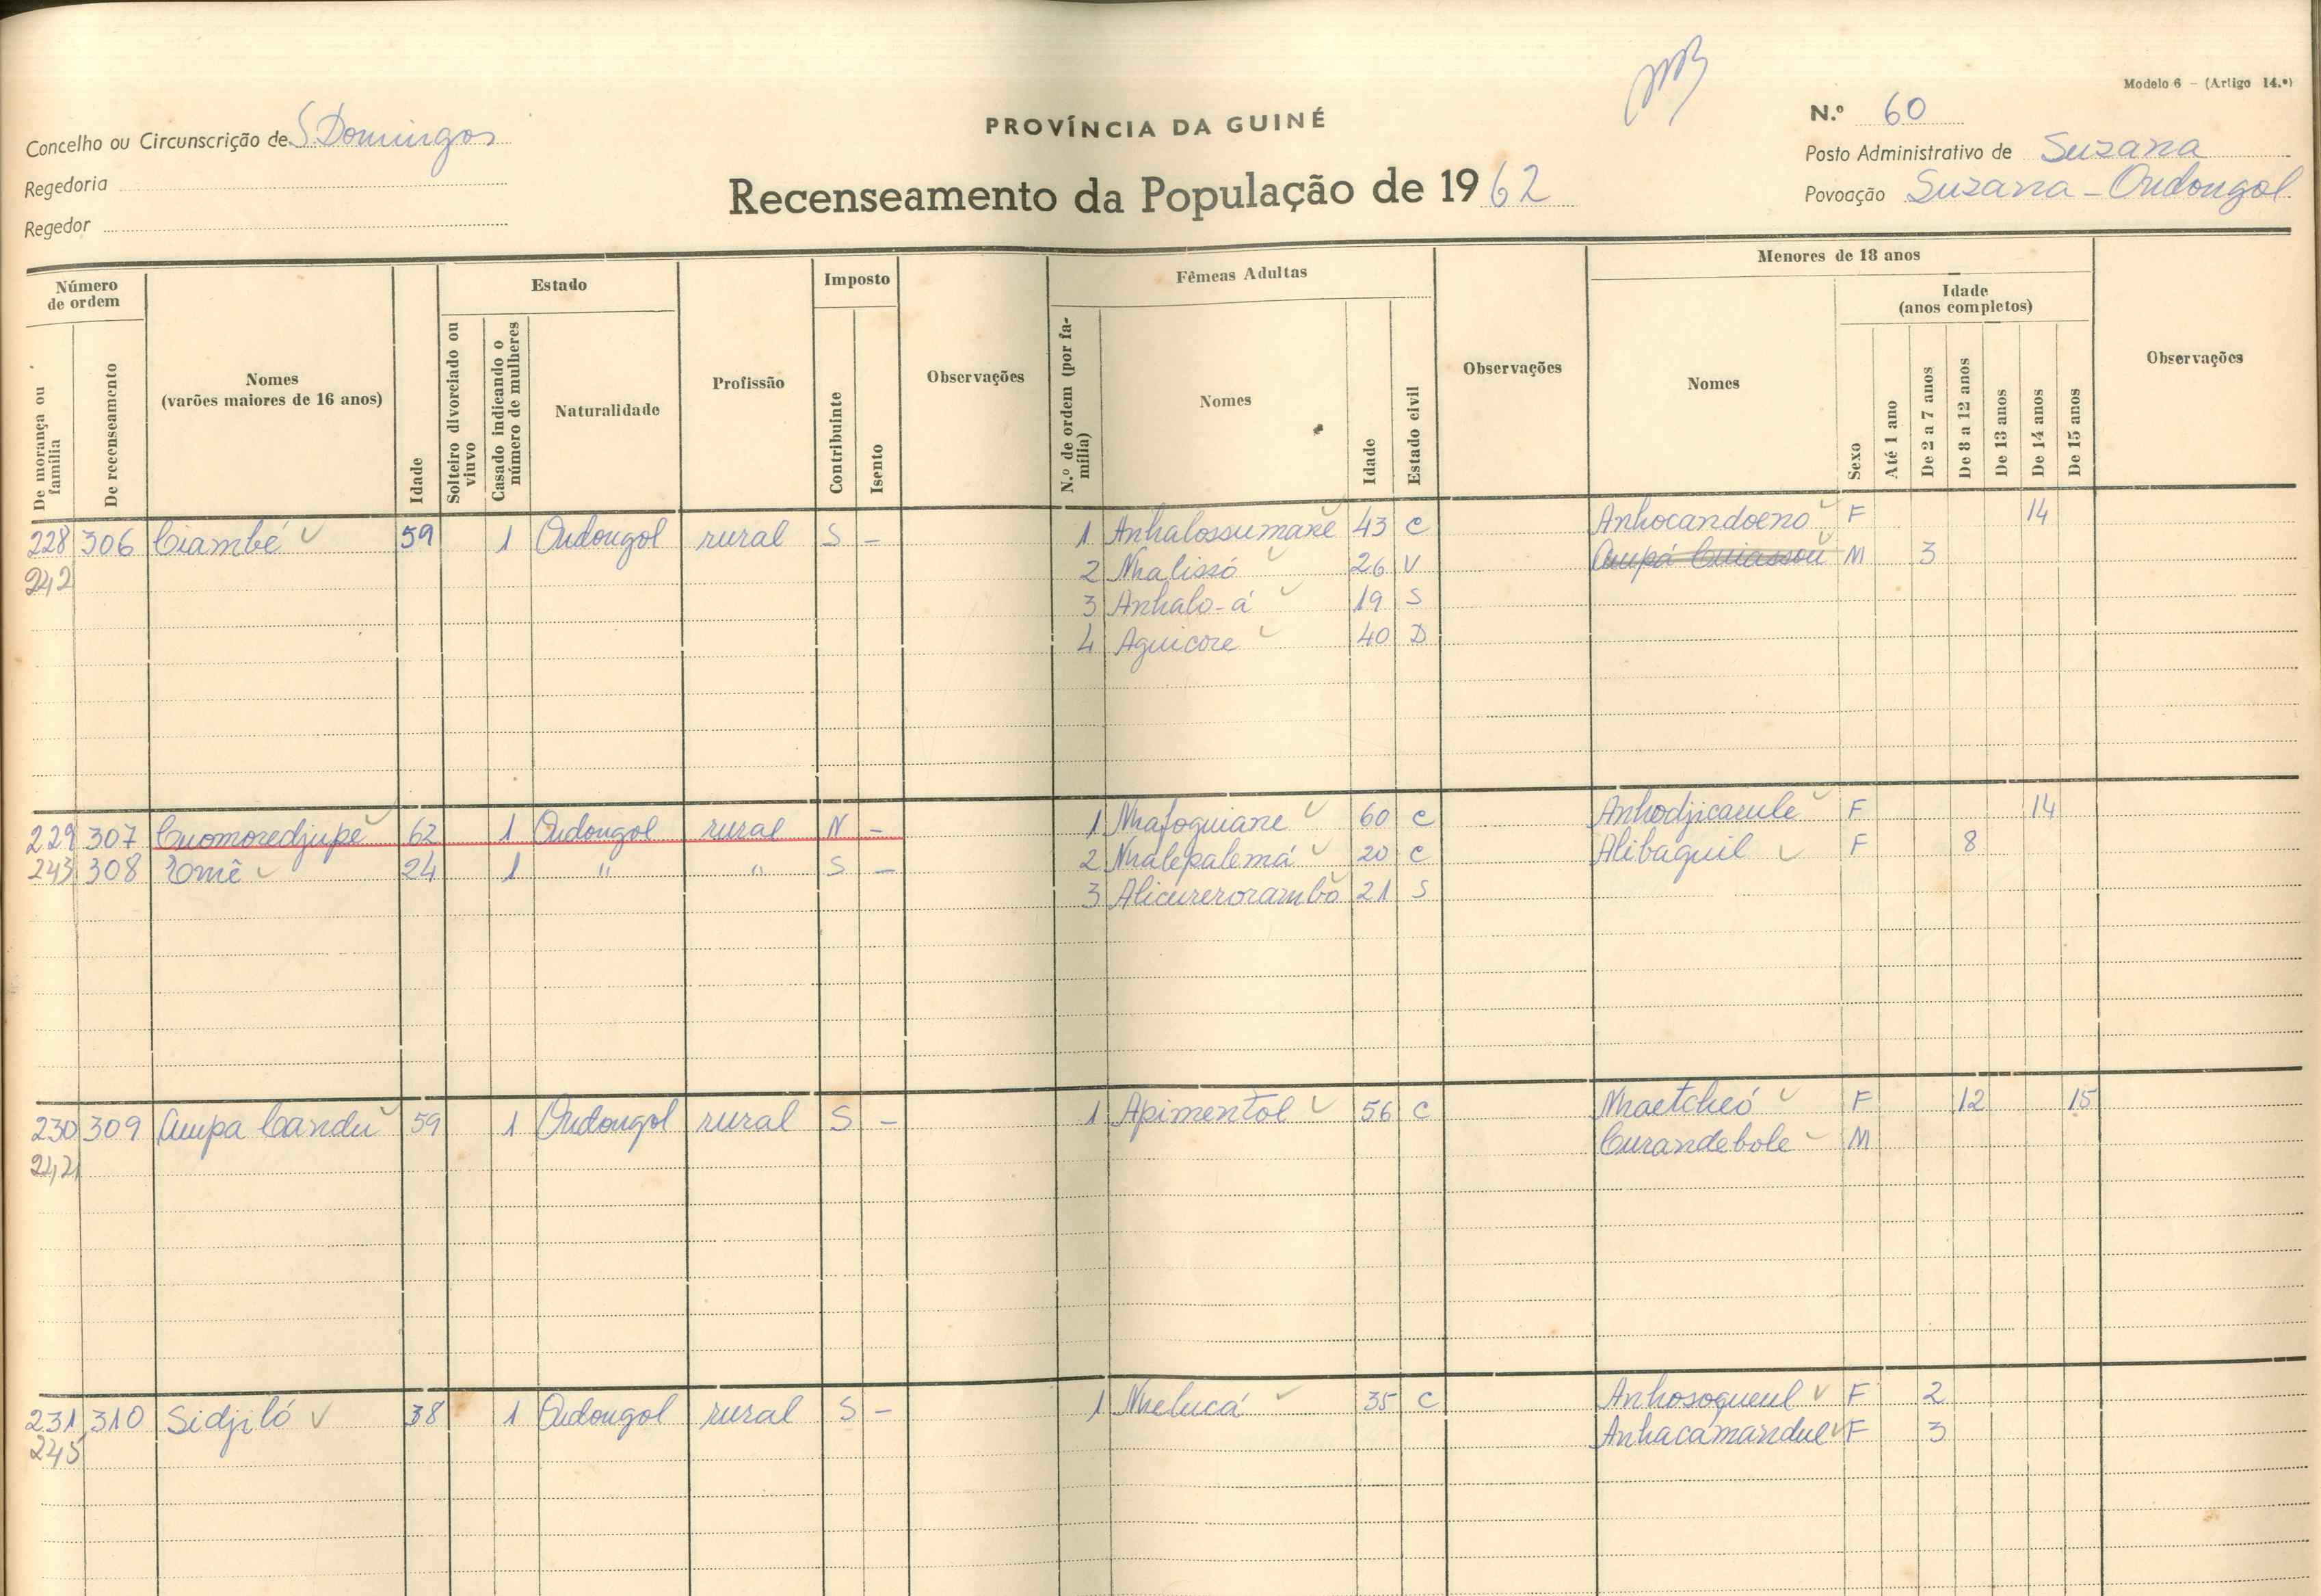 Modelo 6 - (Artigo 14.º)
PROVÍNCIA DA GUINÉ
N.º 60
Concelho ou Circunscrição de S Domingos
Posto Administrativo de Suzana
Regedoria
Recenseamento da População de 1962
Povoação Suzana - Ondongol
Regedor
Número de ordem
De morança ou família
De recenseamento
Nomes (varões maiores de 16 anos)
Idade
Estado
Solteiro divorciado ou viuvo
Casado indicando o número de mulheres
Naturalidade
Profissão
Imposto
Contribuinte
Isento
Observações
Fêmeas Adultas
N.º de ordem (por família)
Nomes
Idade
Estado civil
Observações
Menores de 18 anos
Nomes
Sexo
Idade (anos completos)
Até 1 ano
De 2 a 7 anos
De 8 a 12 anos
De 13 anos
De 14 anos
De 15 anos
Observações
228 306 Ciambé 59 1 Ondongol rural S - 1 Anhalossumane 43 C Anhocandoeno F 14
242 2 Nhalissó 26 V M 3
3 Anhalo-á 19 S
4 Aguicore 40 D
229 307 Cuomoredjupe 62 1 Ondongol rural N - 1 Nhafoguiane 60 C Anhodjicaule F 14
243 308 Tomé 24 1 " " S - 2 Nhalepalemá 20 C Alibaguil F 8
3 Alicurerorambo 21 S
230 309 Aupa Candu 59 1 Ondongol rural S - 1 Apimentol 56 C Nhaetcheó F 12 15
Curandebole M
231 310 Sidjiló 38 1 Ondongol rural S - 1 Nhelucá 35 C Anhosogueul F 2
245 Anhacamandul F 3